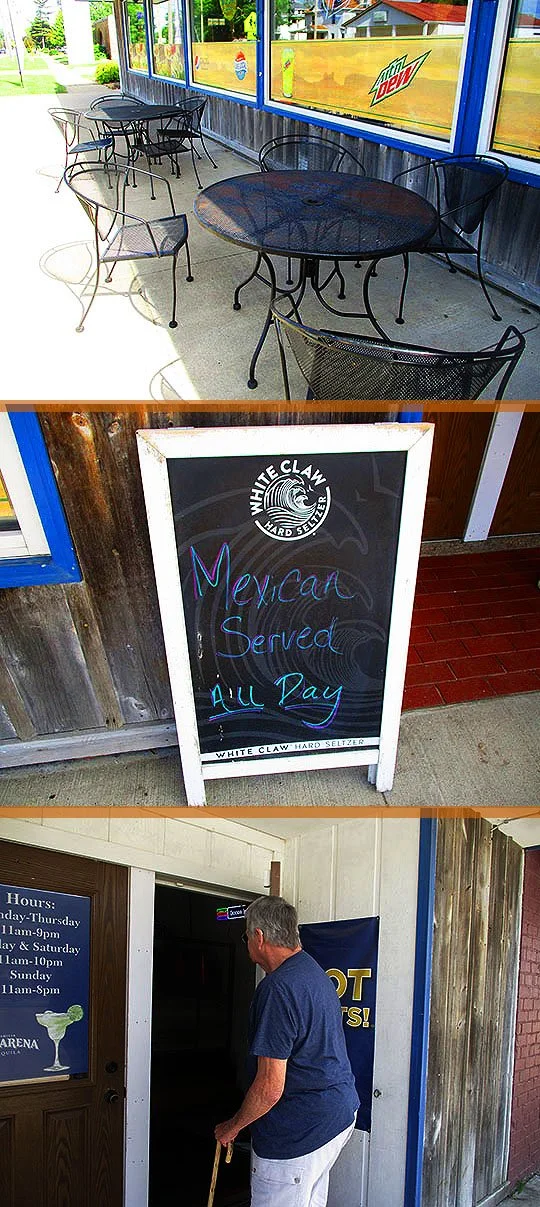 Mtn
DEW
WHITE CLAW
HARD SELTZER
Mexican
Served
All Day
WHITE CLAW HARD SELTZER
Hours:
nday-Thursday
11am-9pm
ay & Saturday
11am-10pm
Sunday
11am-8pm
ARENA
QUILA
OT
TS!